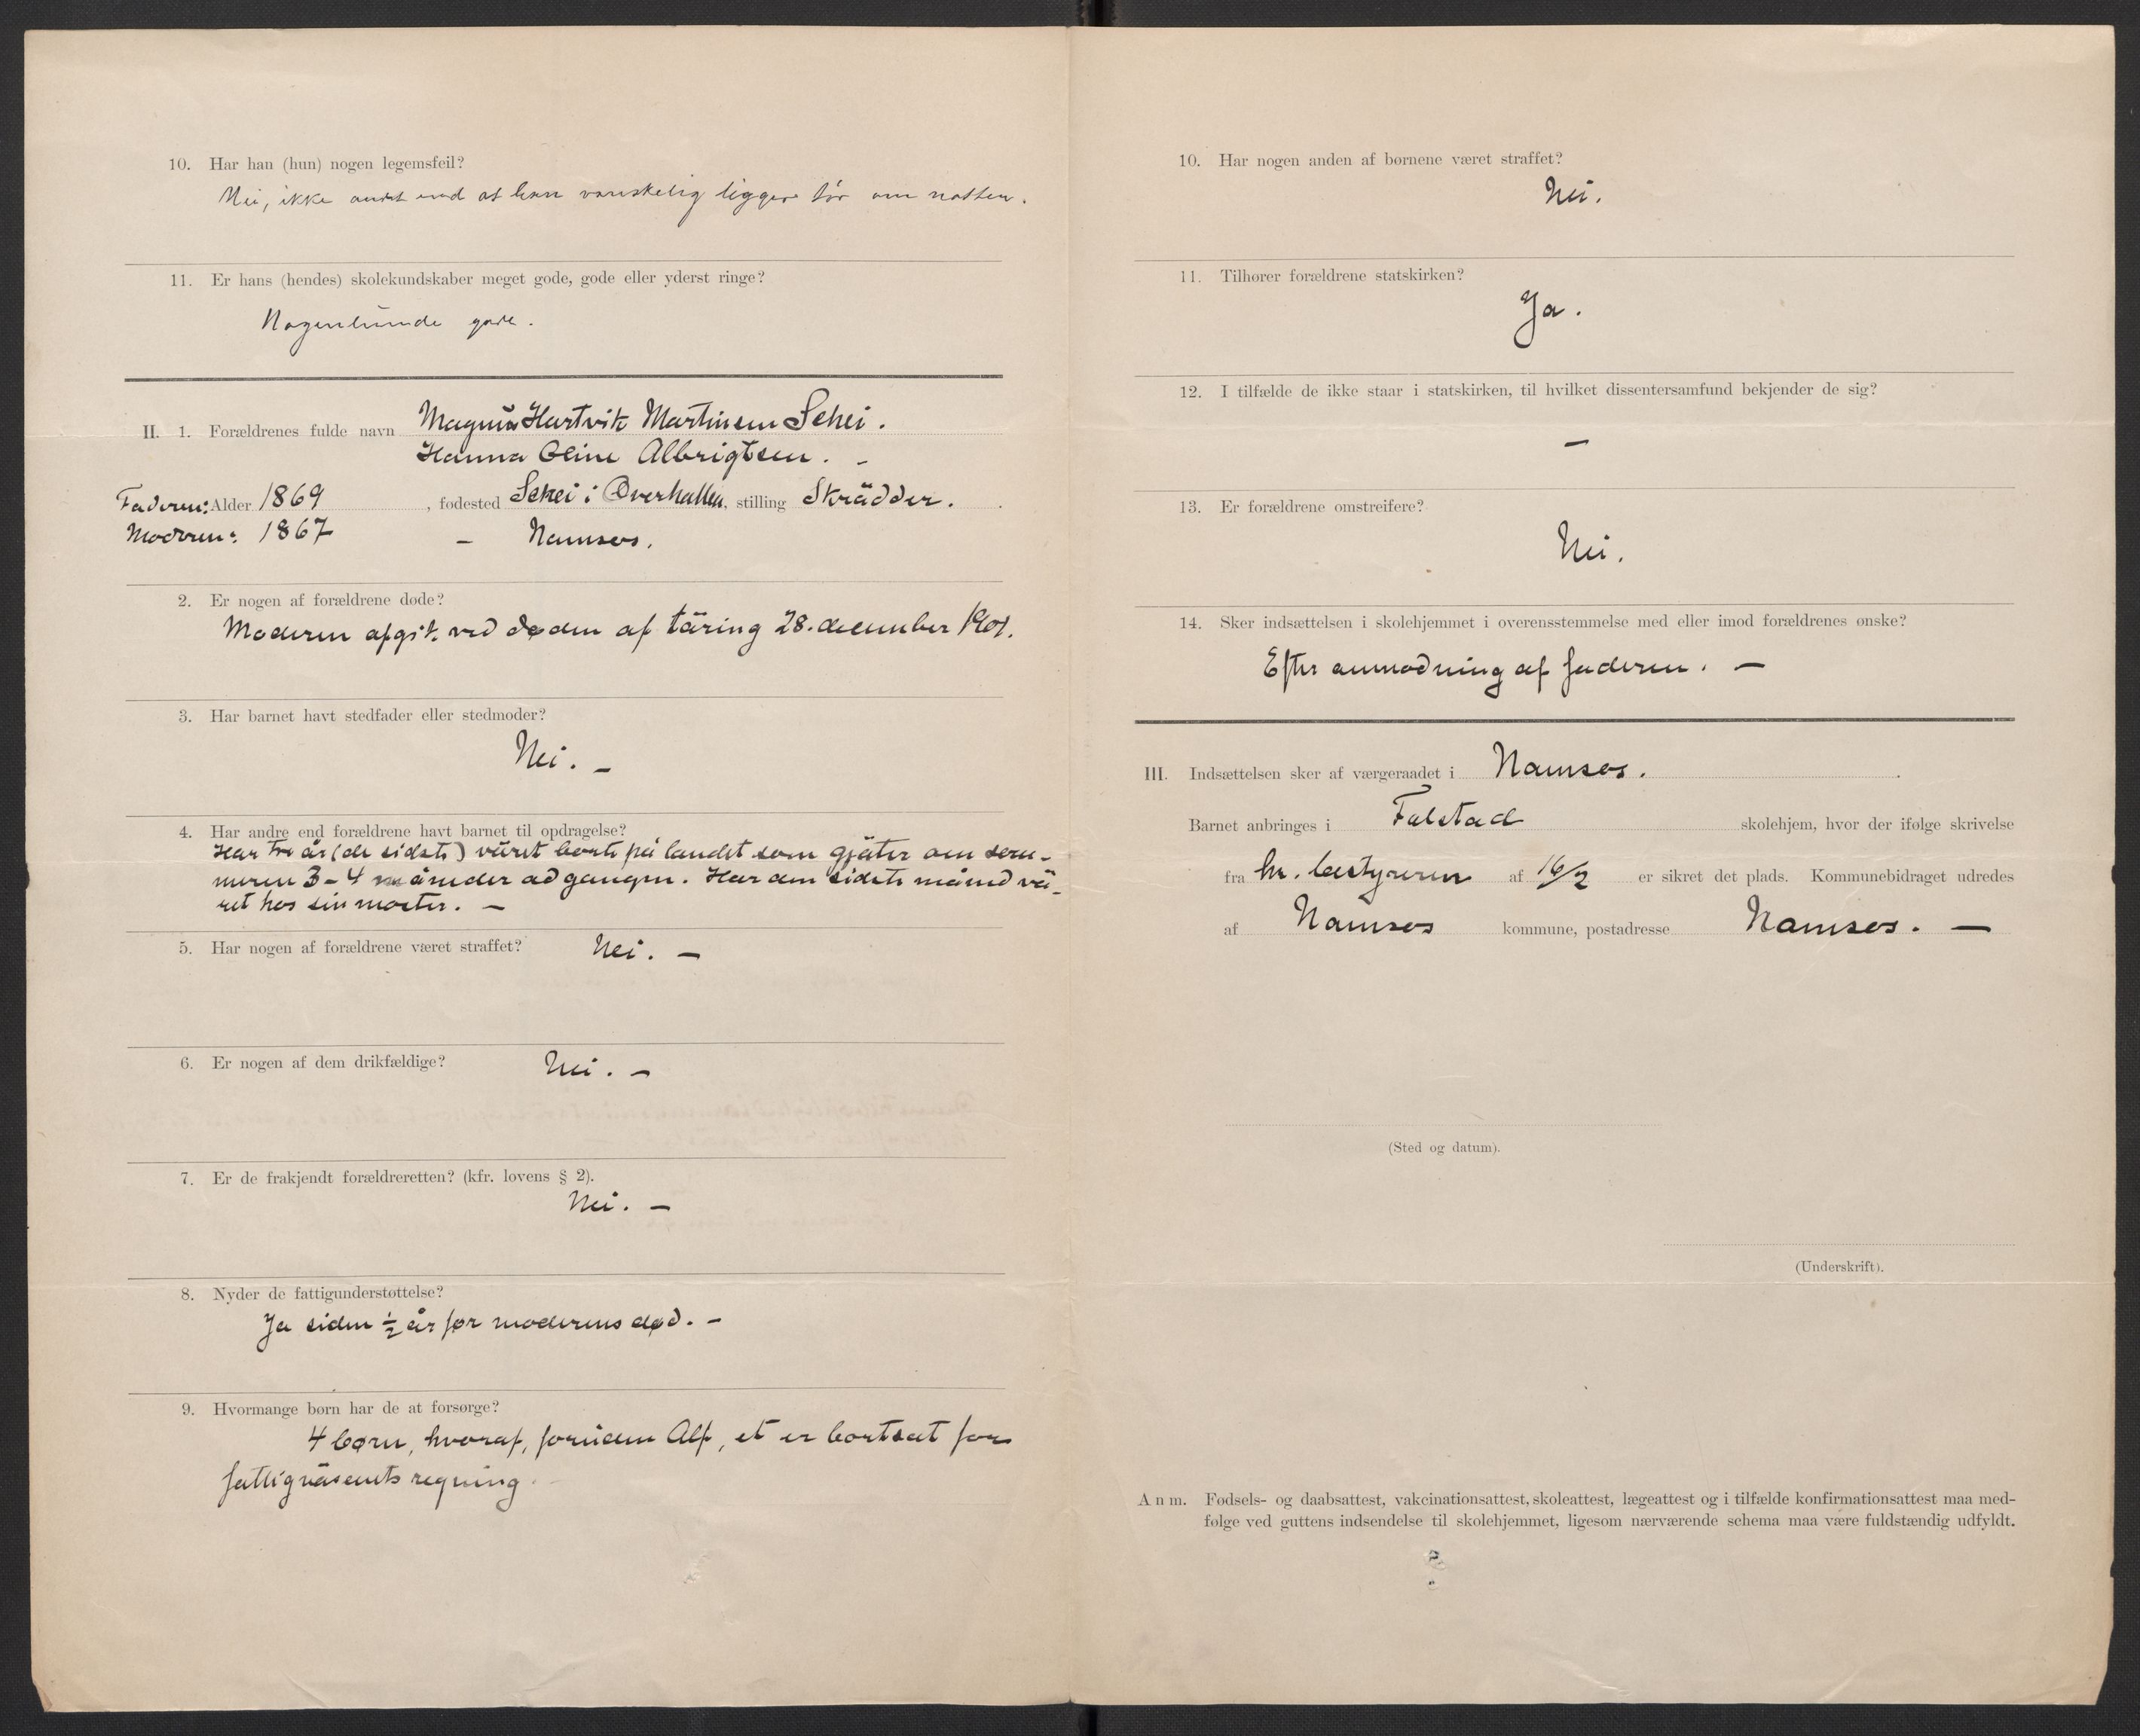 10. Har han (hun) nogen legemsfeil?
Nei, ikke andet end at han vanskelig ligger tør om natten.
11. Er hans (hendes) skolekundskaber meget gode, gode eller yderst ringe?
Nogenlunde gode.
II. 1. Forældrenes fulde navn Magnus Hartvik Martinsen Schei.
Hanna Oline Albrigtsen. –
Faderen: Alder 1869, fødested Schei i Overhallen, stilling Skrädder.
Moderen: 1867 – Namsos.
2. Er nogen af forældrene døde?
Moderen afgik ved døden af täring 28. december 1901.
3. Har barnet havt stedfader eller stedmoder?
Nei. –
4. Har andre end forældrene havt barnet til opdragelse?
Har tre år (de sidste) väret borte på landet som gjäter om som-
meren 3–4 måneder ad gangen. Har den sidste måned vä-
ret hos sin moster. –
5. Har nogen af forældrene været straffet? Nei. –
6. Er nogen af dem drikfældige? Nei. –
7. Er de frakjendt forældreretten? (kfr. lovens § 2).
Nei. –
8. Nyder de fattigunderstøttelse?
Ja siden ½ år før moderens død. –
9. Hvormange børn har de at forsørge?
4 børn, hvoraf, foruden Alf, et er bortsat for
fattigväsenets regning.
10. Har nogen anden af børnene været straffet?
Nei.
11. Tilhører forældrene statskirken?
Ja.
12. I tilfælde de ikke staar i statskirken, til hvilket dissentersamfund bekjender de sig?
–
13. Er forældrene omstreifere?
Nei.
14. Sker indsættelsen i skolehjemmet i overensstemmelse med eller imod forældrenes ønske?
Efter anmodning af faderen. –
III. Indsættelsen sker af værgeraadet i Namsos.
Barnet anbringes i Falstad skolehjem, hvor der ifølge skrivelse
fra hr. bestyreren af 16/2 er sikret det plads. Kommunebidraget udredes
af Namsos kommune, postadresse Namsos. –
(Sted og datum).
(Underskrift).
Anm. Fødsels- og daabsattest, vakcinationsattest, skoleattest, lægeattest og i tilfælde konfirmationsattest maa med-
følge ved guttens indsendelse til skolehjemmet, ligesom nærværende schema maa være fuldstændig udfyldt.